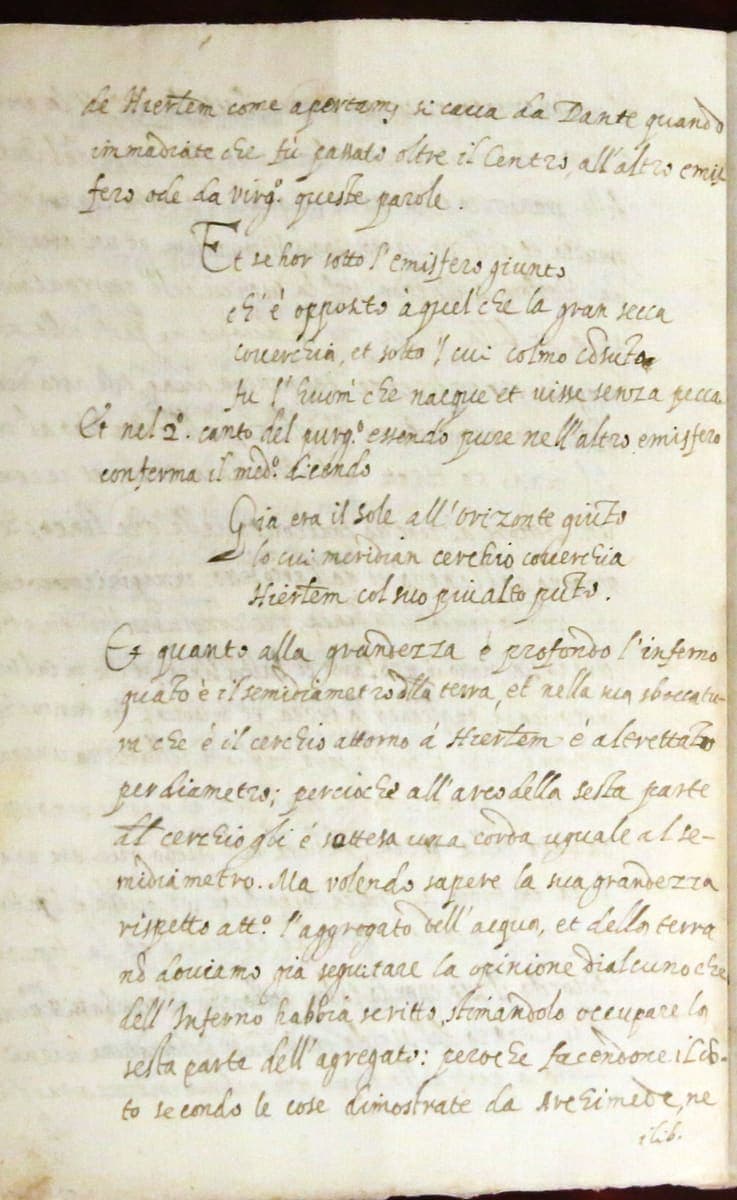 de Hierl̃em come apertam͂ si cava da Dante quando
immadiate che fù passato oltre il Centro, all'altro emis
fero ode da virg.º queste parole.
Et se hor sotto l'emisfero giunto
ch'è opposto à quel che la gran secca
coverchia, et sotto 'l cui colmo cõsuto
fu l'huom che nacque et visse senza pecca
Et nel 2.º canto del purg.º essendo pure nell'altro emisfero
conferma il med.º dicendo
Gia era il sole all'orizonte giũto
lo cui meridian cerchio coverchia
Hierl̃em col suo piu alto pũto.
Et quanto alla grandezza è profondo l'inferno
quãto è il semidiametro dlla terra, et nella sua sboccatu-
ra che è il cerchio attorno á Hierl̃em è altrettãto
per diametro; percioche all'arco della sesta parte
dl cerchio gli è sottesa una corda uguale al se-
midiametro. Ma volendo sapere la sua grandezza
rispetto att.º l'aggregato dell'acqua, et della terra
nõ doviamo già seguitare la opinione di alcuno che
dell'Inferno habbia scritto, stimandolo occupare la
sesta parte dell'agregato: peroche facendone il cõ-
to secondo le cose dimostrate da Archimede, ne
i lib.